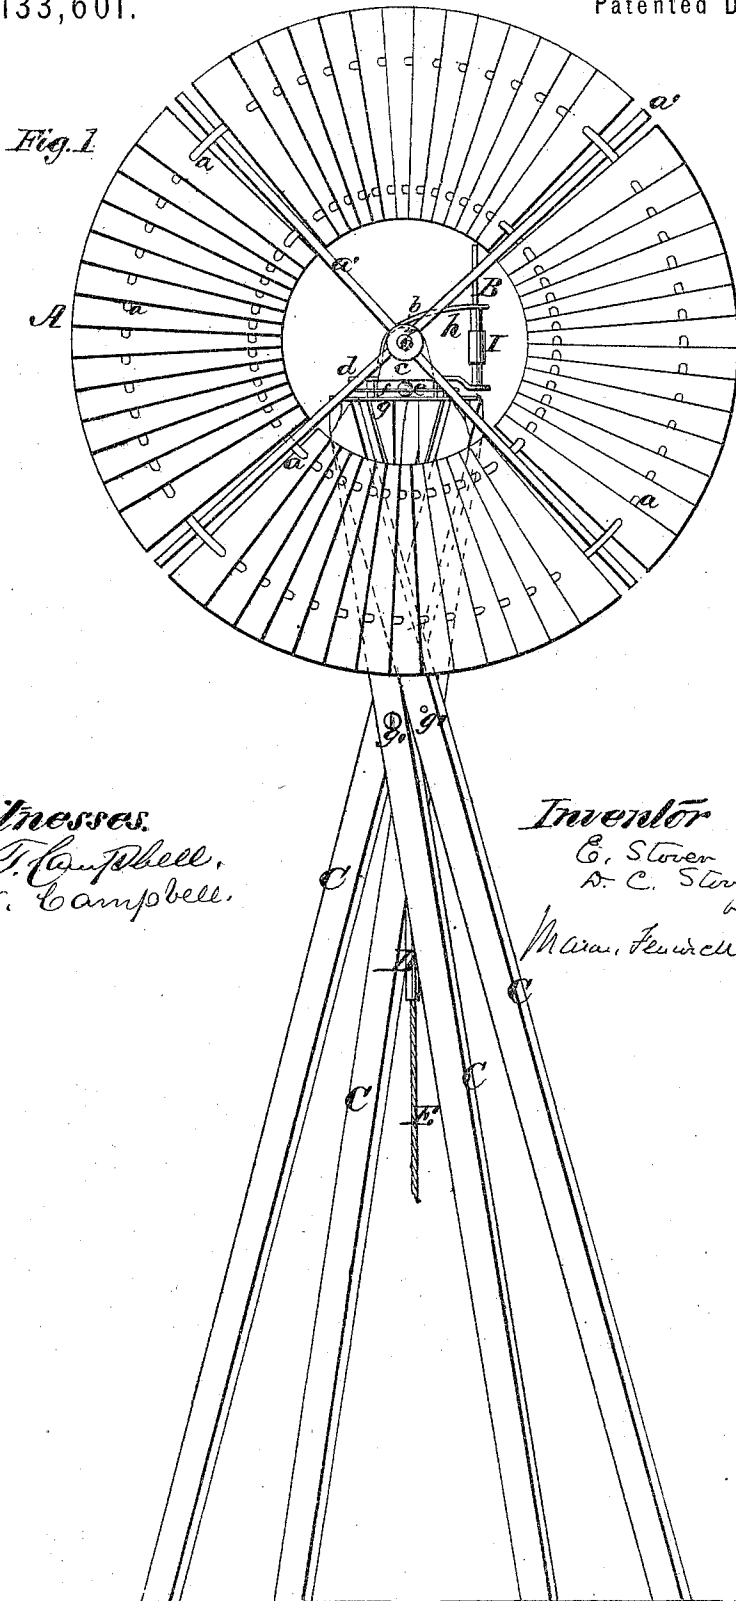 133,601.
Patented D
Fig. 1
a'
a
a'
A
a
B
b
h
I
d
c
f
e
g
a
a
g
g
tnesses.
T. Campbell.
. Campbell.
Inventor
E. Stover
D. C. Stov
Mason, Fenwick
C
C
C
C
E